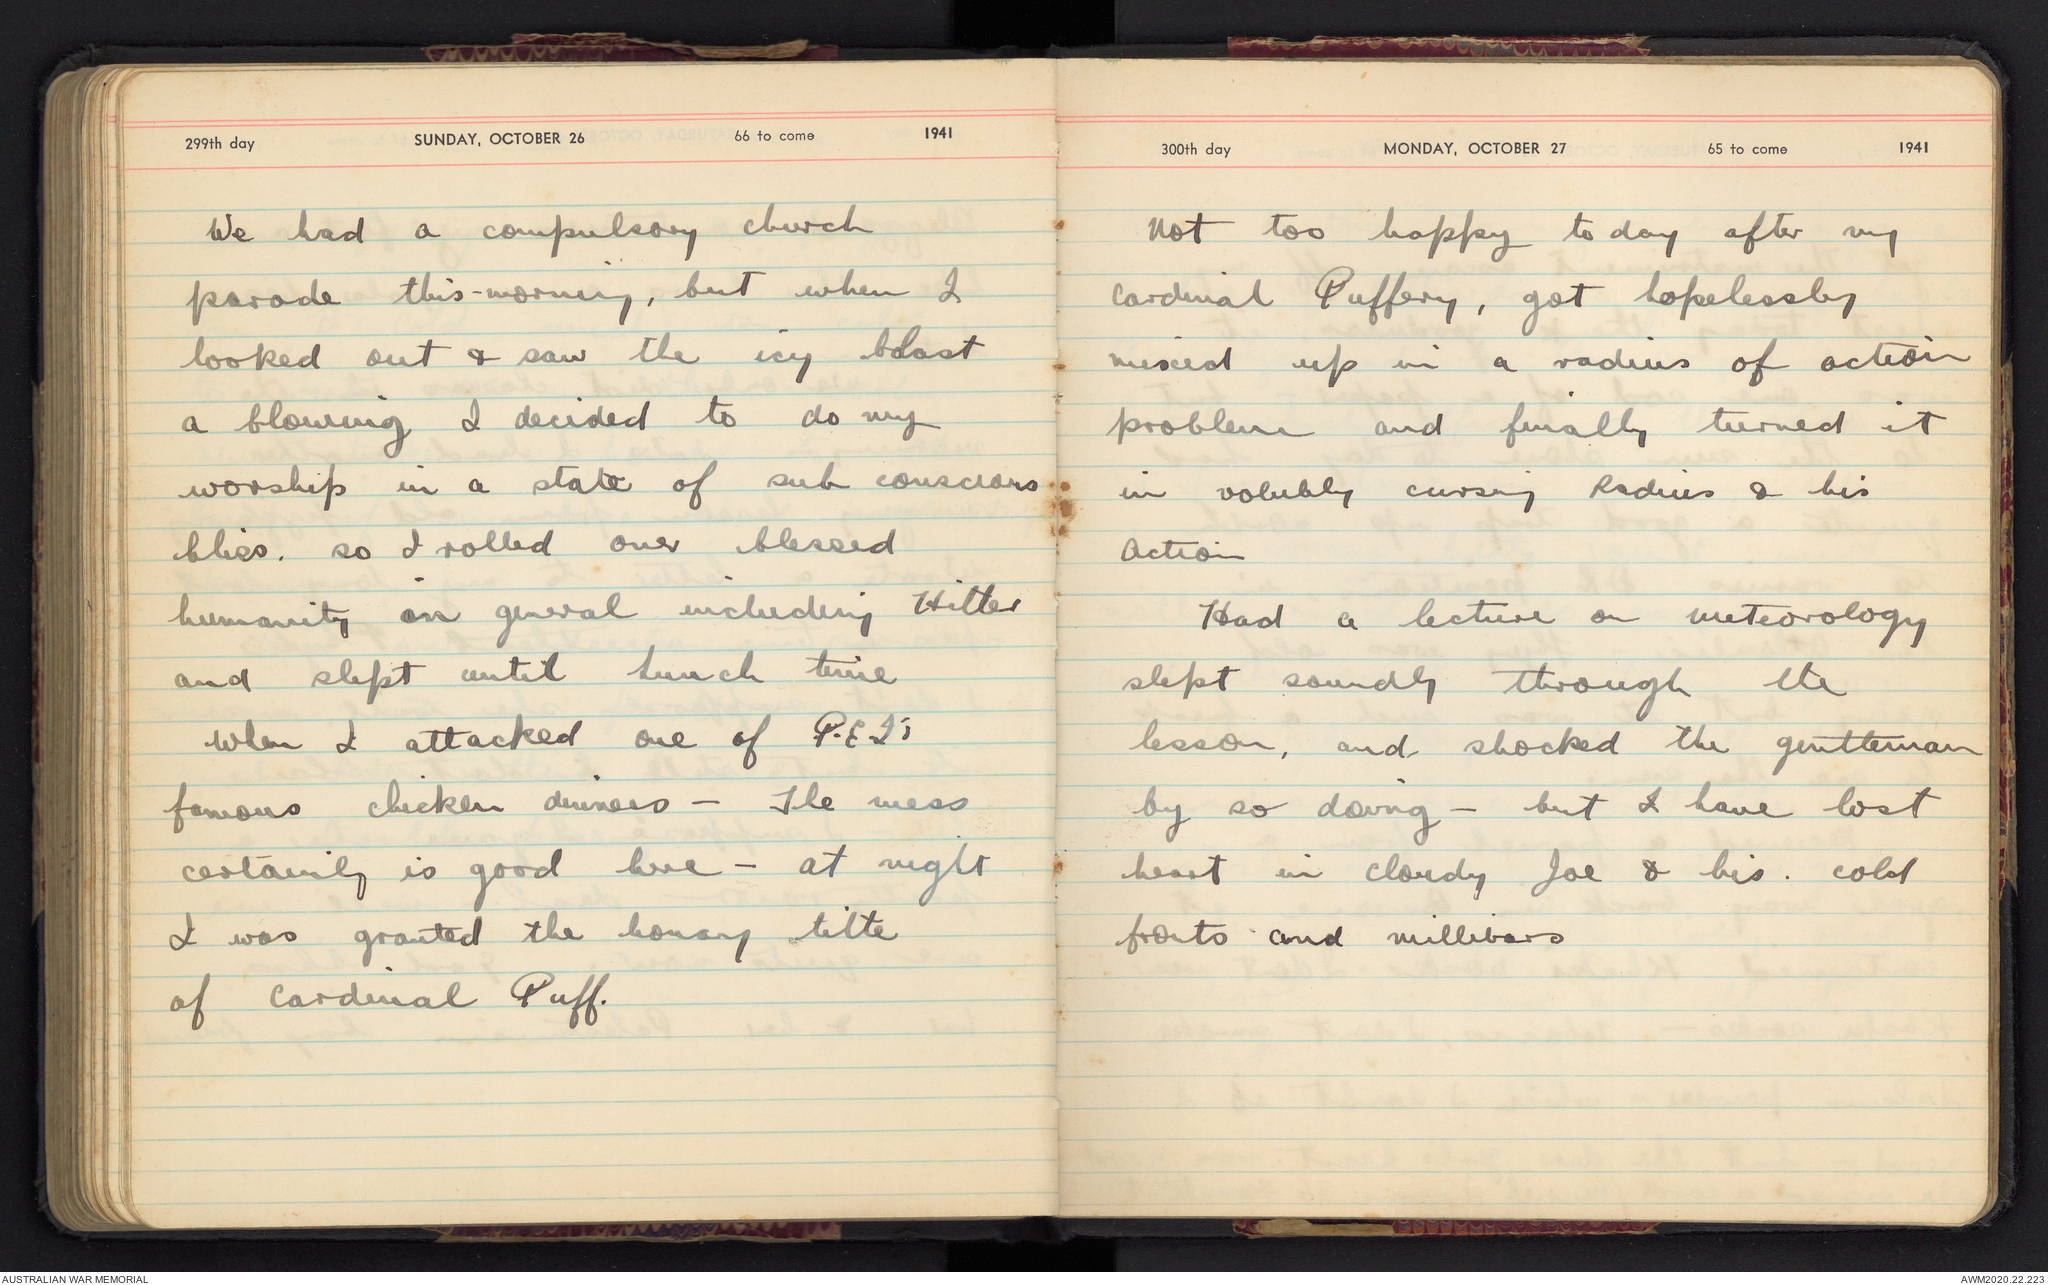 299th day SUNDAY, OCTOBER 26 66 to come 1941
We had a compulsory church
parade this-morning, but when I
looked out & saw the icy blast
a blowing I decided to do my
worship in a state of sub conscious
bliss. so I rolled over blessed
humanity in general including Hitler
and slept until lunch time
when I attacked one of P.E.I's
famous chicken dinners - The mess
certainly is good here - at night
I was granted the honary title
of Cardinal Puff.
300th day MONDAY, OCTOBER 27 65 to come 1941
Not too happy today after my
Cardinal Puffery, got hopelessly
mixed up in a radius of action
problem and finally turned it
in volubly cursing Radius & his
Action
Had a lecture on meteorology
slept soundly through the
lesson, and shocked the gentleman
by so doing - but I have lost
heart in cloudy Joe & his. cold
fronts and millibars
AUSTRALIAN WAR MEMORIAL
AWM2020.22.223